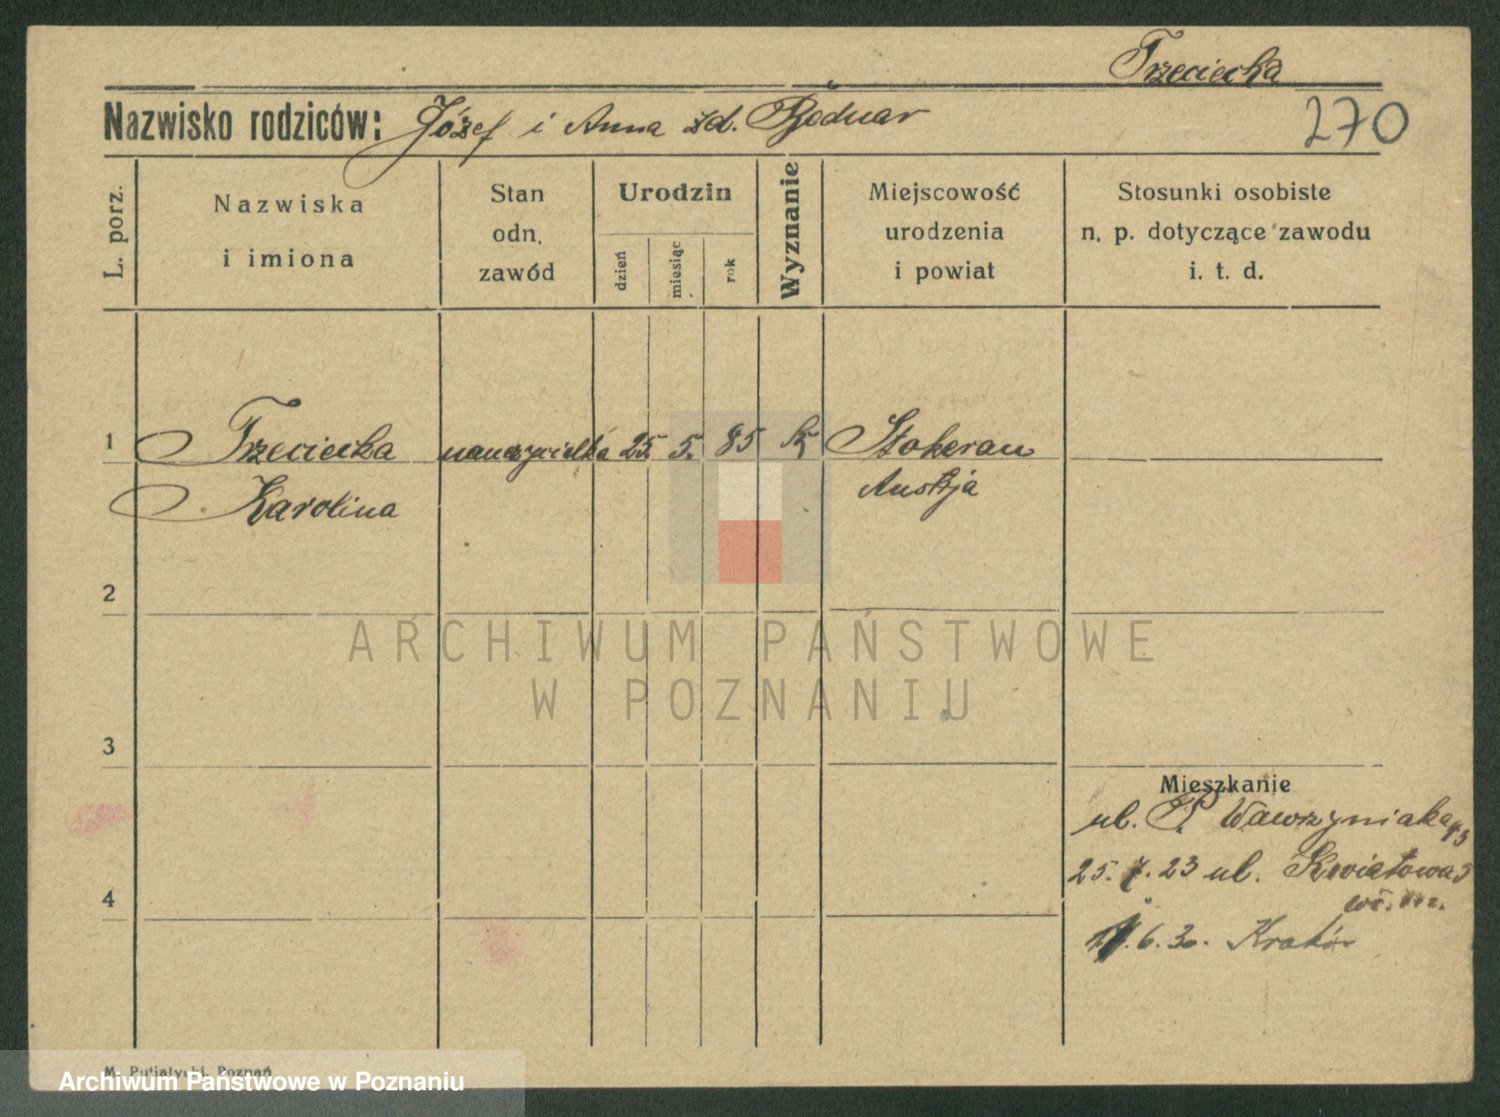 Trzeciecka
Nazwisko rodziców: Józef i Anna zd.
270
L. porz.
Nazwiska
i imiona
Stan
odn.
zawód
Urodzin
dzień
miesiąc
rok
Wyznanie
Miejscowość
urodzenia
i powiat
Stosunki osobiste
n. p. dotyczące zawodu
i. t. d.
1 Trzeciecka nauczycielka 25. 5. 85 Stokerau
Karolina Austrja
2
3
4
Mieszkanie
ul. P. Wawrzyniaka
25. 7. 23 ul. Kwiatowa 5
6. 30. Kraków
ARCHIWUM PAŃSTWOWE
W POZNANIU
M. Putiatycki, Poznań
Archiwum Państwowe w Poznaniu